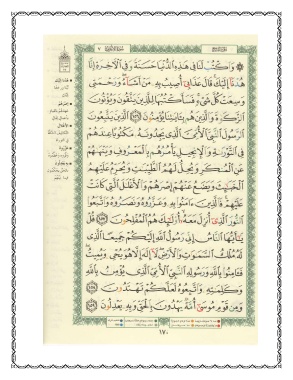 وَاكْتُبْ لَنَا فِي هَٰذِهِ الدُّنْيَا حَسَنَةً وَفِي الْآخِرَةِ إِنَّا
هُدْنَا إِلَيْكَ قَالَ عَذَابِي أُصِيبُ بِهِ مَنْ أَشَاءُ وَرَحْمَتِي
وَسِعَتْ كُلَّ شَيْءٍ فَسَأَكْتُبُهَا لِلَّذِينَ يَتَّقُونَ وَيُؤْتُونَ
الزَّكَوٰةَ وَالَّذِينَ هُم بِآيَاتِنَا يُؤْمِنُونَ ١٥٦ الَّذِينَ يَتَّبِعُونَ
الرَّسُولَ النَّبِيَّ الْأُمِّيَّ الَّذِي يَجِدُونَهُ مَكْتُوبًا عِندَهُمْ
فِي التَّوْرَىٰةِ وَالْإِنجِيلِ يَأْمُرُهُم بِالْمَعْرُوفِ وَيَنْهَىٰهُمْ
عَنِ الْمُنكَرِ وَيُحِلُّ لَهُمُ الطَّيِّبَاتِ وَيُحَرِّمُ عَلَيْهِمُ
الْخَبَائِثَ وَيَضَعُ عَنْهُمْ إِصْرَهُمْ وَالْأَغْلَالَ الَّتِي كَانَتْ
عَلَيْهِمْ فَالَّذِينَ آمَنُوا بِهِ وَعَزَّرُوهُ وَنَصَرُوهُ وَاتَّبَعُوا
النُّورَ الَّذِي أُنزِلَ مَعَهُ أُولَٰئِكَ هُمُ الْمُفْلِحُونَ ١٥٧ قُلْ
يَا أَيُّهَا النَّاسُ إِنِّي رَسُولُ اللَّهِ إِلَيْكُمْ جَمِيعًا الَّذِي
لَهُ مُلْكُ السَّمَاوَاتِ وَالْأَرْضِ لَا إِلَٰهَ إِلَّا هُوَ يُحْيِي وَيُمِيتُ
فَآمِنُوا بِاللَّهِ وَرَسُولِهِ النَّبِيِّ الْأُمِّيِّ الَّذِي يُؤْمِنُ بِاللَّهِ
وَكَلِمَاتِهِ وَاتَّبِعُوهُ لَعَلَّكُمْ تَهْتَدُونَ ١٥٨
وَمِن قَوْمِ مُوسَىٰ أُمَّةٌ يَهْدُونَ بِالْحَقِّ وَبِهِ يَعْدِلُونَ ١٥٩
١٧٠